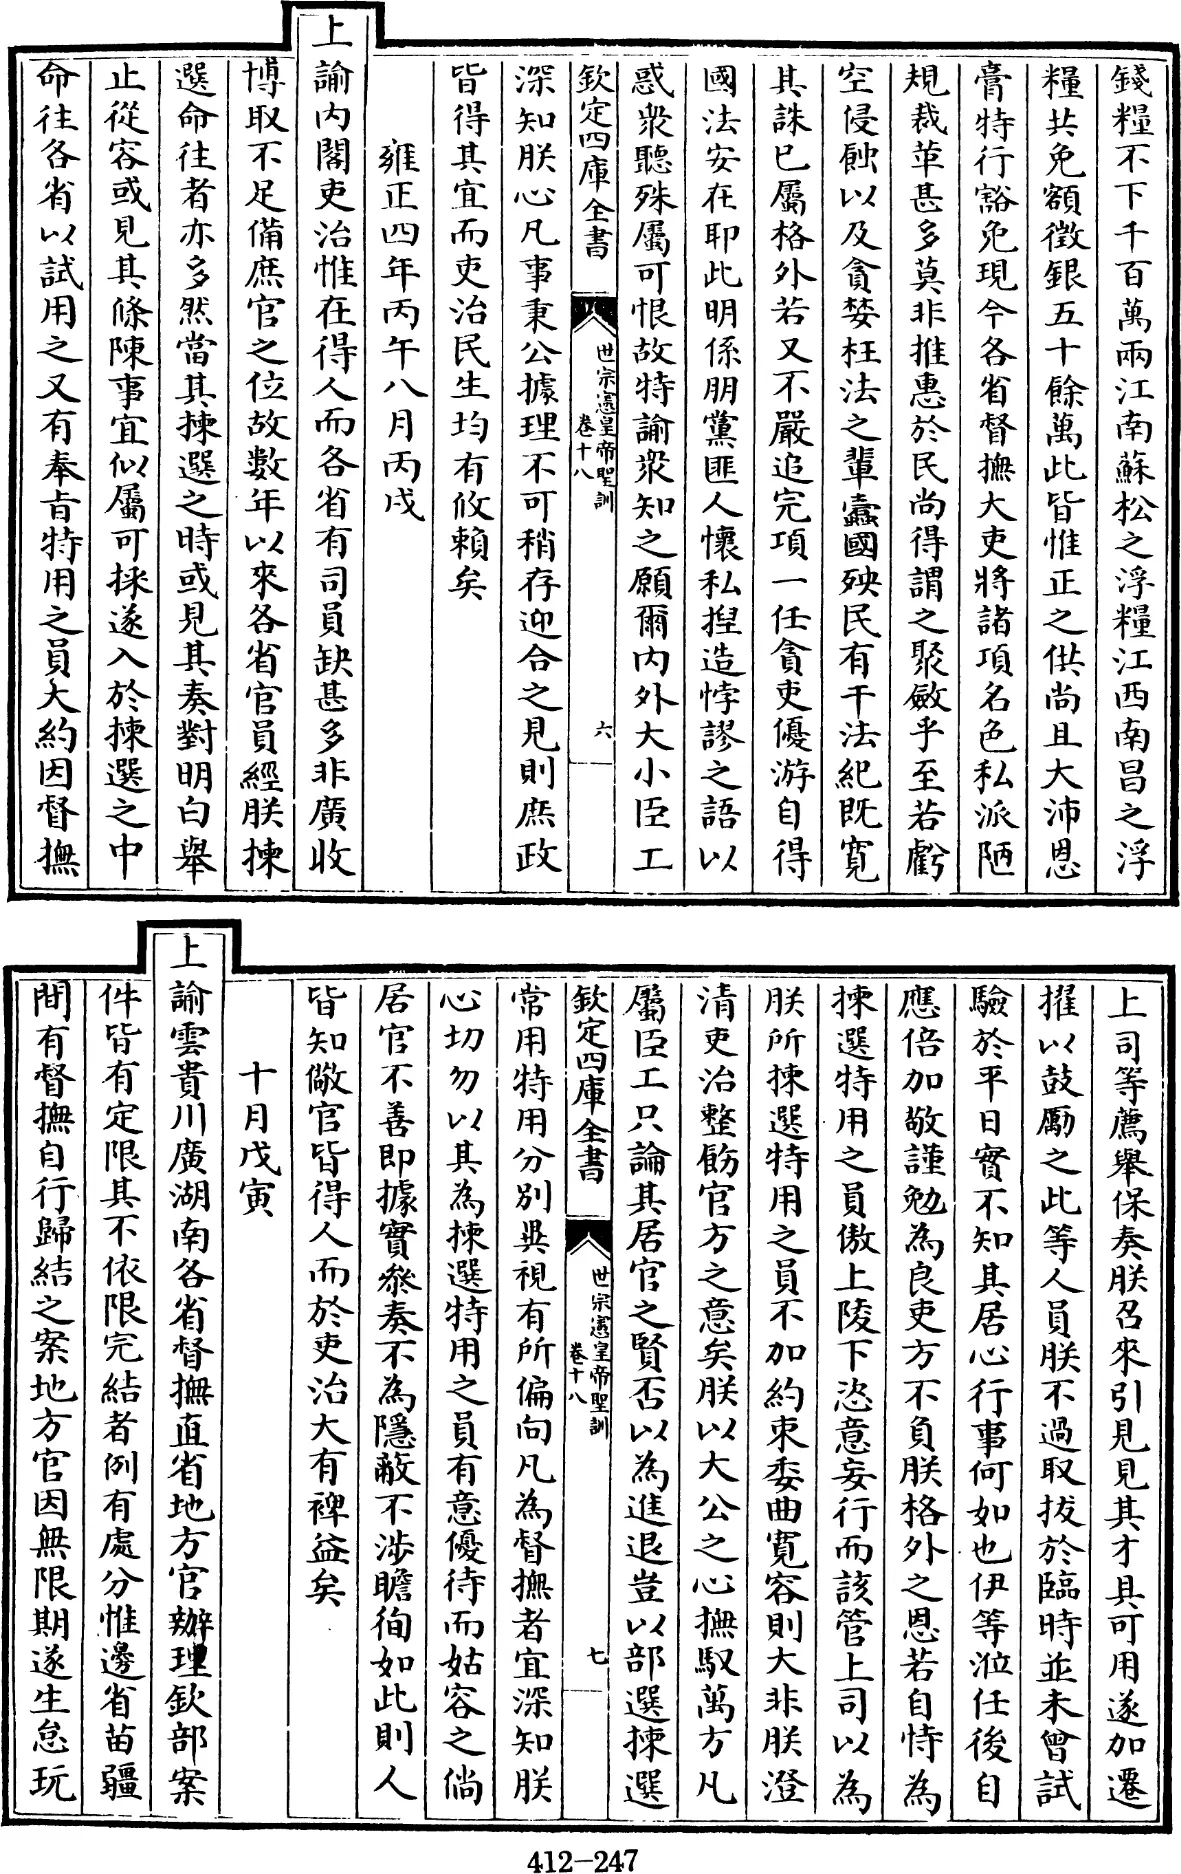 錢糧不下千百萬兩江南蘇松之浮糧江西南昌之浮
糧共免額徵銀五十餘萬此皆惟正之供尚且大沛恩
膏特行豁免現今各省督撫大吏將諸項名色私派陋
規裁革甚多莫非推惠於民尚得謂之聚斂乎至若虧
空侵蝕以及貪婪枉法之輩蠹國殃民有干法紀既寛
其誅已屬格外若又不嚴追完項一任貪吏優游自得
國法安在耶此明係朋黨匪人懷私揑造悖謬之語以
惑衆聽殊屬可恨故特諭衆知之願爾内外大小臣工
欽定四庫全書
世宗憲皇帝聖訓
卷十八
六
深知朕心凡事秉公據理不可稍存迎合之見則庶政
皆得其宜而吏治民生均有攸賴矣
雍正四年丙午八月丙戌
上諭内閣吏治惟在得人而各省有司員缺甚多非廣收
博取不足備庶官之位故數年以來各省官員經朕揀
選命往者亦多然當其揀選之時或見其奏對明白舉
止從容或見其條陳事宜似屬可採遂入於揀選之中
命往各省以試用之又有奉旨特用之員大約因督撫
上司等薦舉保奏朕召來引見見其才具可用遂加遷
擢以鼓勵之此等人員朕不過取拔於臨時並未曾試
驗於平日實不知其居心行事何如也伊等涖任後自
應倍加敬謹勉為良吏方不負朕格外之恩若自恃為
揀選特用之員傲上陵下恣意妄行而該管上司以為
朕所揀選特用之員不加約束委曲寛容則大非朕澄
清吏治整飭官方之意矣朕以大公之心撫馭萬方凡
屬臣工只論其居官之賢否以為進退豈以部選揀選
欽定四庫全書
世宗憲皇帝聖訓
卷十八
七
常用特用分別異視有所偏向凡為督撫者宜深知朕
心切勿以其為揀選特用之員有意優待而姑容之倘
居官不善即據實叅奏不為隱蔽不涉瞻徇如此則人
皆知儆官皆得人而於吏治大有裨益矣
十月戊寅
上諭雲貴川廣湖南各省督撫直省地方官辦理欽部案
件皆有定限其不依限完結者例有處分惟邊省苗疆
間有督撫自行歸結之案地方官因無限期遂生怠玩
412-247